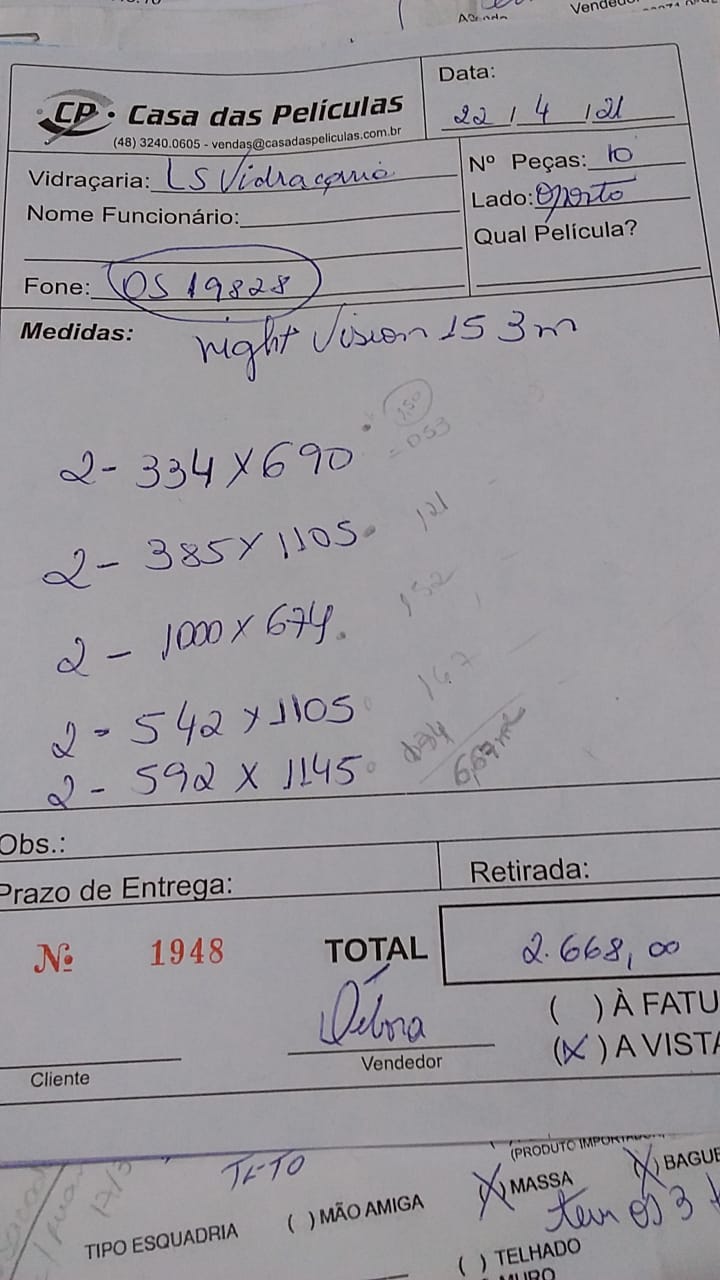 Vended
CP. Casa das Películas
(48) 3240.0605 - vendas@casadaspeliculas.com.br
Data:
22 / 4 / 21
Vidraçaria: LS Vidraçaria
Nº Peças: 10
Nome Funcionário:
Lado: Oposto
Qual Película?
Fone: OS 19828
Medidas: night Vision 15 3m
1,50
2- 334 x 690 = 053
2- 385 x 1105. 121
2 - 1000 x 674. 152
2 - 542 x 1105 167
2 - 592 x 1145
6,67m²
Obs.:
Prazo de Entrega:
Retirada:
Nº 1948 TOTAL 2.668,00
( ) À FATU
Débora
(X) A VISTA
Cliente
Vendedor
(PRODUTO IMPORTADO
TETO
(X) MASSA
(X) BAGUE
tem os 3
TIPO ESQUADRIA
( ) MÃO AMIGA
( ) TELHADO
MURO